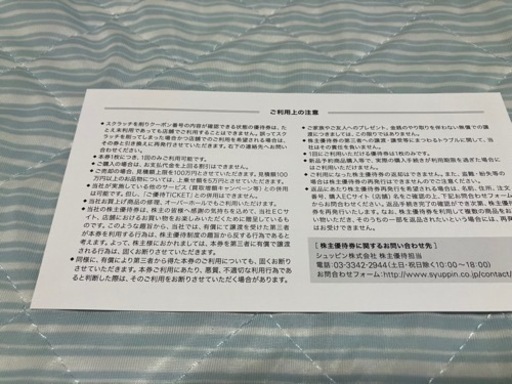 ご利用上の注意
● スクラッチを削りクーポン番号の内容が確認できる状態の優待券は、た
とえ未利用であっても店舗でご利用することはできません。誤ってスク
ラッチを削ってしまった場合かつ店舗でのご利用を希望される場合は、
その券と引き換えに再発行させていただきます。右下の連絡先へお問
い合わせください。
● 本券1枚につき、1回のみご利用可能です。
● ご購入の場合は、お支払代金を上回る割引はできません。
● ご売却の場合、見積額上限を100万円とさせていただきます。見積額100
万円以上のお品物については、上乗せ額を5万円とさせていただきます。
● 当社が実施している他のサービス（買取増額キャンペーン等）との併用
は可能です。但し、「ご優待TICKET」との併用はできません。
● 当社お買上げ商品の修理、オーバーホールでもご利用いただけます。
● 当社の株主優待券は、株主の皆様へ感謝の気持ちを込めて、当社ECサ
イト、店舗におけるお買い物をお楽しみいただくために贈呈しているもの
です。このような趣旨から、当社では、有償にて譲渡を受けた第三者
が本券を利用する行為は、株主優待制度の趣旨から反する行為である
と考えます。よって、株主様におかれましては、本券を第三者に有償で譲渡
される行為は、固くお断りさせていただきます。
● 同様に、有償により第三者から得た本券のご利用についても、固くお断り
させていただきます。本券ご利用にあたり、悪質、不適切な利用行為である
と判断した際は、そのご利用をお断りさせていただく場合があります。
● ご家族やご友人へのプレゼント、金銭のやり取りを伴わない無償での譲
渡につきましては、この限りではありません。
● 株主優待券の第三者への譲渡・譲受等にまつわるトラブルに関して、当
社はその責任を負いません。
● 1回にご利用いただける優待券は1枚のみです。
● 新品予約商品購入等で、実際の購入手続きが利用期限を過ぎた場合に
はご利用いただけません。
● ご利用になった株主優待券の返却はできません。また、盗難・紛失等の
場合は株主優待券の再発行はできませんのでご注意ください。
● 返品にあたり株主優待券再発行を希望される場合は、名前、住所、注文
番号、購入ECサイト（店舗）名をご確認の上、下記お問合せフォームから
お問合わせください。返品手続き完了の確認ができ次第、株主優待
券を再発行いたします。なお、株主優待券を利用して複数の商品をお買
い物いただき、そのうちの一部を返品されたいという場合、再発行は
お受けできません。
[ 株主優待券に関するお問い合わせ先 ]
シュッピン株式会社 株主優待担当
電話：03-3342-2944（土日・祝日除く10:00～18:00）
お問合わせフォーム：http://www.syuppin.co.jp/contact/